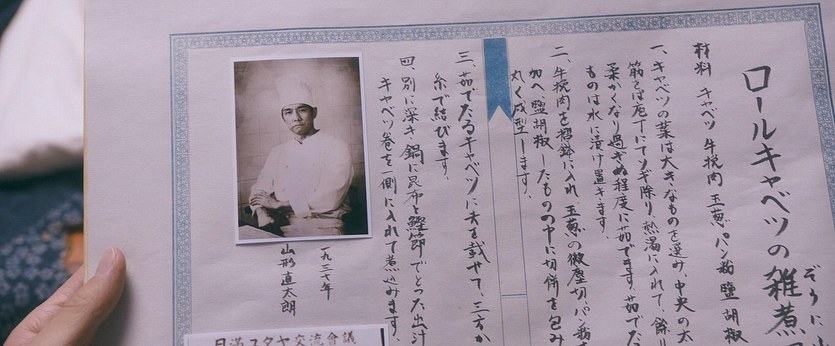 ロールキャベツの雑煮
ぞうに
材料 キャベツ 牛挽肉 玉葱 パン粉 鹽 胡椒
一、キャベツの葉は大きなものを選み、中央の太
筋をば庖丁にてソギ除り、熱湯に入れて、餘り
柔かくなり過ぎぬ程度に茹でます。茹でた
ものは水に漬け置きます。
二、牛挽肉を擂鉢に入れ、玉葱の微塵切、パン粉を
加へ、鹽胡椒したものの中に切餅を包み
丸く成型します。
三、茹でたるキャベツに夫を載せて、三方か
糸で結びます。
四、別に深き鍋に昆布と鰹節でとった出汁
キャベツ巻を一側に入れて煮込みます。
一九三七年
山形直太朗
日満ユダヤ交流会議